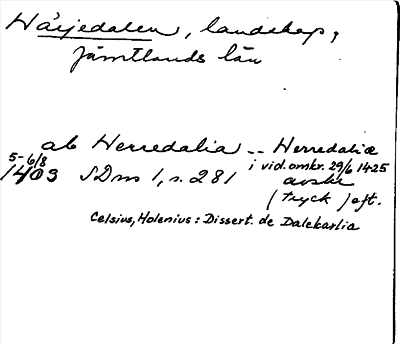 Härjedalen, landskap,
Jämtlands län
ab Herredalia -- Herredalia
5-6/8 i vid. omkr. 29/6 1425
1403 SDns 1, s. 281 avskr
(tryck) eft.
Celsius, Holenius: Dissert. de Dalekarlia